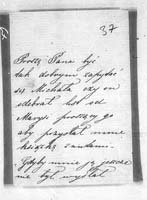 37
Proszę Pana być
tak dobrym zapytać
się Michała czy on
odebrał list od
Maryi proszę go
aby przysłał mnie
książkę
Gdyby mnie jeszcze
nie był wysłał